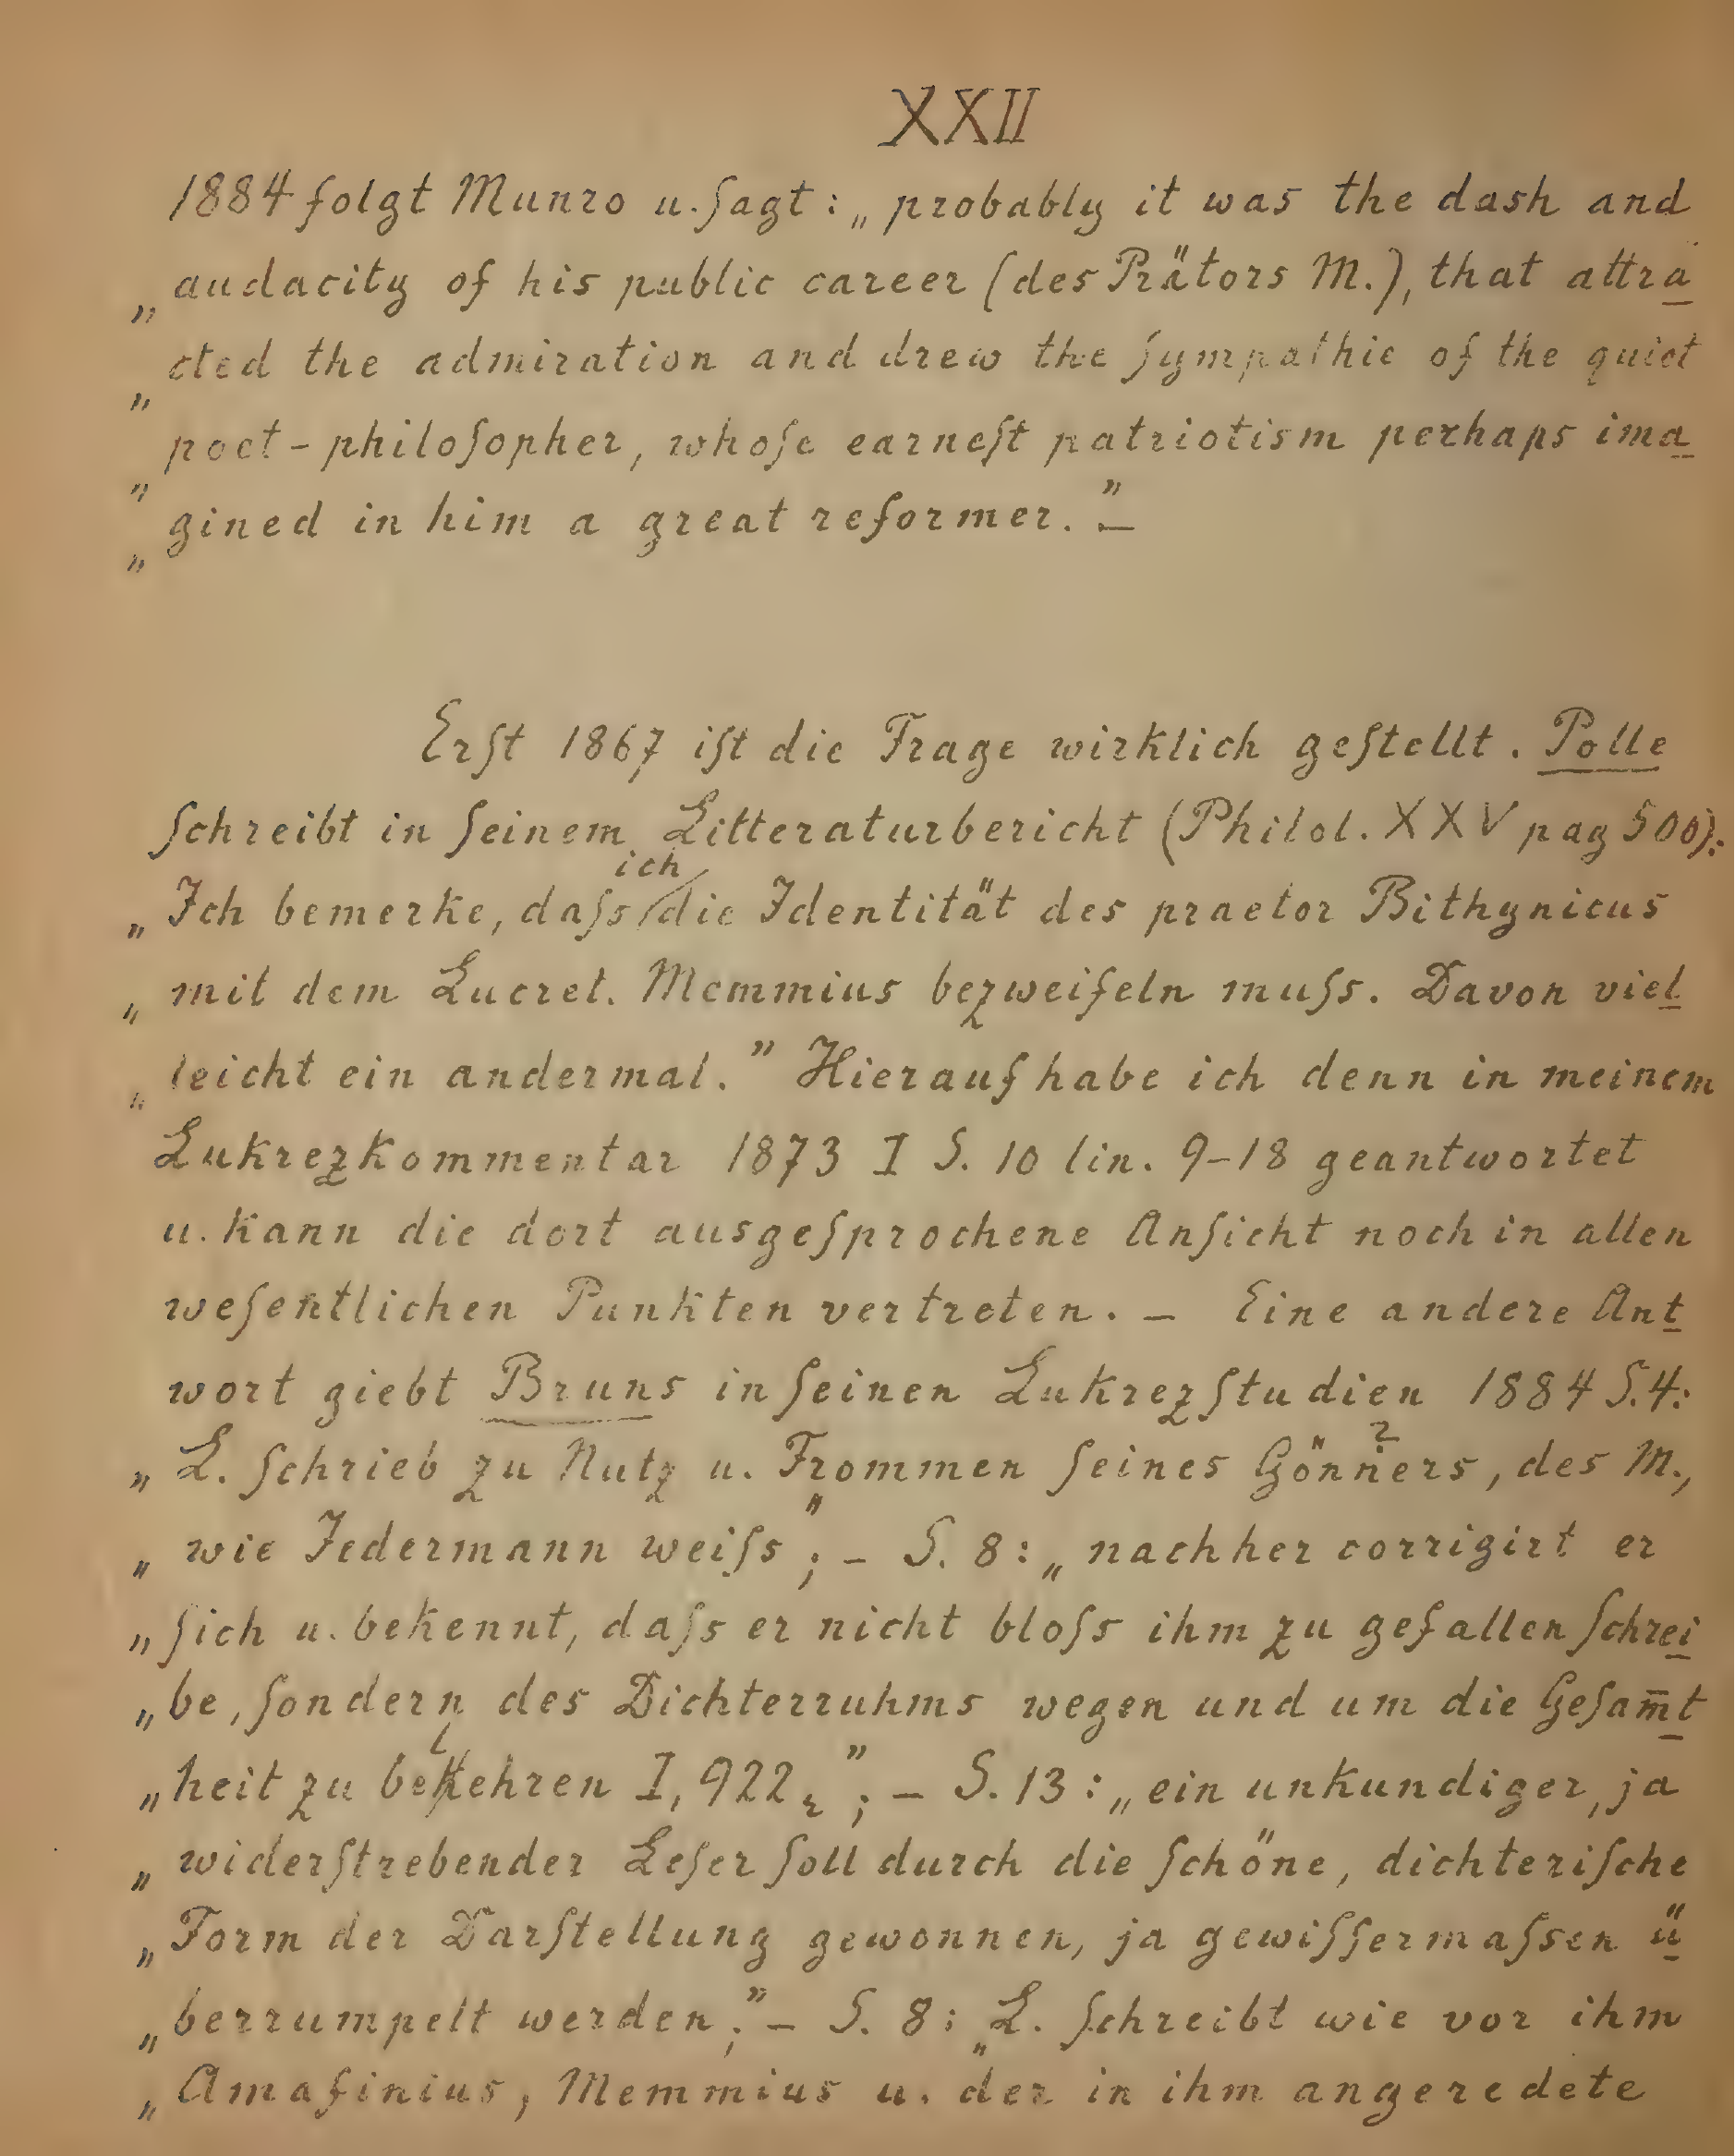 XXII
1884 folgt Munro u. ſagt: „probably it was the dash and
„audacity of his public career (des Prätors M.), that attra
„cted the admiration and drew the ſympathie of the quiet
„poet-philoſopher, whoſe earneſt patriotism perhaps ima
„gined in him a great reformer.” —
Erſt 1867 iſt die Frage wirklich geſtellt. Polle
ſchreibt in ſeinem Litteraturbericht (Philol. XXV pag 500):
„Ich bemerke, daſs ich die Identität des praetor Bithynicus
„mit dem Lucret. Memmius bezweifeln muſs. Davon viel
„leicht ein andermal.” Hierauf habe ich denn in meinem
Lukrezkommentar 1873 I S. 10 lin. 9–18 geantwortet
u. kann die dort ausgeſprochene Anſicht noch in allen
weſentlichen Punkten vertreten. — Eine andere Ant
wort giebt Bruns in ſeinen Lukrezſtudien 1884 S. 4:
„L. ſchrieb zu Nutz u. Frommen ſeines Gönners, des M.,
„wie Jedermann weiſs”; — S. 8: „nachher corrigirt er
„ſich u. bekennt, daſs er nicht bloſs ihm zu gefallen ſchrei
„be, ſondern des Dichterruhms wegen und um die Geſam̅t
„heit zu belehren I, 922,”; — S. 13: „ein unkundiger, ja
„widerſtrebender Leſer ſoll durch die ſchöne, dichteriſche
„Form der Darſtellung gewonnen, ja gewiſſermaſsen ü
„berrumpelt werden;” — S. 8: „L. ſchreibt wie vor ihm
„Amafinius, Memmius u. der in ihm angeredete